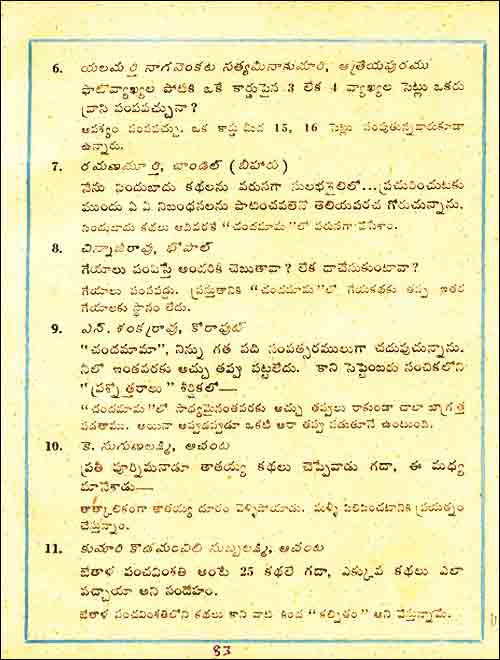 6. యలమర్తి నాగవెంకట సత్యమీనాకుమారి, ఆత్రేయపురము
ఫొటోవ్యాఖ్యల పోటీకి ఒకే కార్డుపైన 3 లేక 4 వ్యాఖ్యల సెట్లు ఒకరు
వ్రాసి పంపవచ్చునా?
అవశ్యం పంపవచ్చు. ఒక కార్డు మీద 15, 16 సెట్లు పంపుతున్నవారుకూడా
ఉన్నారు.
7. రమణమూర్తి, చాండిల్ (బీహారు)
నేను సిందుబాదు కథలను వరుసగా సులభశైలిలో...ప్రచురించుటకు
ముందు ఏ ఏ నిబంధనలను పాటించవలెనో తెలియపరచ గోరుచున్నాను.
సిందుబాదు కథలు ఇదివరకే "చందమామ"లో వరుసగా వేసేశాం.
8. చిన్నాజీరావు, భోపాల్
గేయాలు పంపిస్తే అందరికీ చెబుతావా? లేక దాచేసుకుంటావా?
గేయాలు పంపవద్దు. ప్రస్తుతానికి "చందమామ"లో గేయకథకు తప్ప ఇతర
గేయాలకు స్థానం లేదు.
9. ఎన్. శంకరావు, కోరాపుట్
"చందమామా", నిన్ను గత పది సంవత్సరములుగా చదువుచున్నాను.
నీలో ఇంతవరకు అచ్చు తప్పు పట్టలేదు. కాని సెప్టెంబరు సంచికలోని
"ప్రశ్నోత్తరాలు" శీర్షికలో—
"చందమామ"లో సాధ్యమైనంతవరకు అచ్చు తప్పులు రాకుండా చాలా జాగ్రత్త
పడతాము. అయినా అప్పుడప్పుడూ ఒకటీ అరా తప్పు పడుతూనే ఉంటుంది.
10. కె. సుగుణలక్ష్మి, ఆచంట
ప్రతి పూర్ణిమనాడూ తాతయ్య కథలు చెప్పేవాడు గదా, ఈ మధ్య
మానేశాడు—
తాత్కాలికంగా తాతయ్య దూరం వెళ్ళిపోయాడు. మళ్ళీ పిలిపించటానికి ప్రయత్నం
చేస్తున్నాం.
11. కుమారి కొడమంచిలి సుబ్బలక్ష్మి, ఆచంట
బేతాళ పంచవింశతి అంటే 25 కథలే గదా, ఎక్కువ కథలు ఎలా
వచ్చాయా అని సందేహం.
బేతాళ పంచవింశతిలోని కథలు కాని వాటి కింద "కల్పితం" అని వేస్తున్నామే.
83